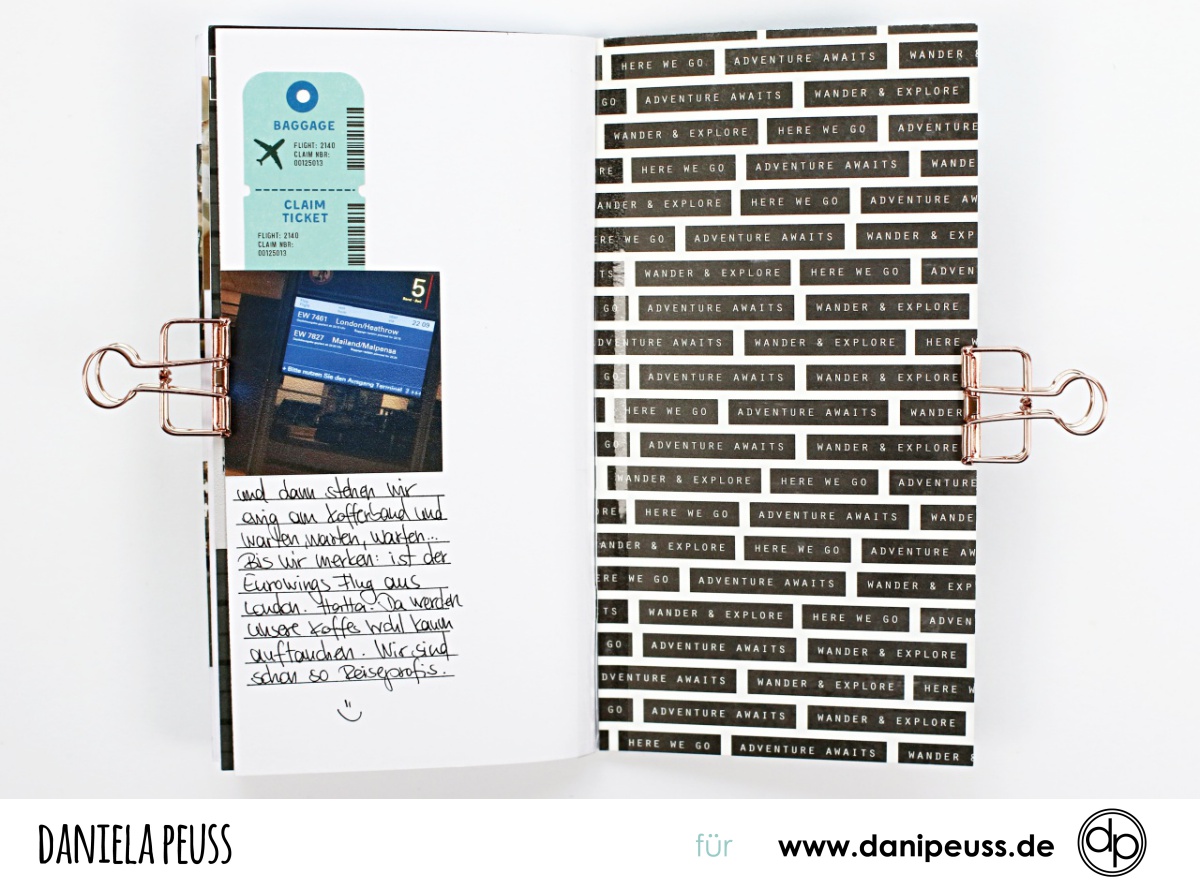 BAGGAGE
FLIGHT: 2140
CLAIM NBR:
00125013
CLAIM
TICKET
FLIGHT: 2140
CLAIM NBR:
00125013
5
EW 7461 London/Heathrow 22:09
EW 7827 Mailand/Malpensa
Bitte nutzen Sie den Ausgang Terminal 2
und dann stehen wir
ewig am Kofferband und
warten, warten, warten...
Bis wir merken: ist der
Eurowings Flug aus
London. Hatta. Da werden
unsere Koffer wohl kaum
auftauchen. Wir sind
schon so Reiseprofis.
HERE WE GO ADVENTURE AWAITS WANDER &
GO ADVENTURE AWAITS WANDER & EXPLORE
WANDER & EXPLORE HERE WE GO ADVENTURE
RE HERE WE GO ADVENTURE AWAITS WANDE
ANDER & EXPLORE HERE WE GO ADVENTURE AW
ERE WE GO ADVENTURE AWAITS WANDER & EXP
TS WANDER & EXPLORE HERE WE GO ADVEN
GO ADVENTURE AWAITS WANDER & EXPLORE
DVENTURE AWAITS WANDER & EXPLORE HERE W
GO ADVENTURE AWAITS WANDER & EXPLORE
HERE WE GO ADVENTURE AWAITS WANDER
GO ADVENTURE AWAITS WANDER & EXPLORE
WANDER & EXPLORE HERE WE GO ADVENTURE
ORE HERE WE GO ADVENTURE AWAITS WANDE
ANDER & EXPLORE HERE WE GO ADVENTURE AW
ERE WE GO ADVENTURE AWAITS WANDER & EXP
TS WANDER & EXPLORE HERE WE GO ADVEN
GO ADVENTURE AWAITS WANDER & EXPLORE
DVENTURE AWAITS WANDER & EXPLORE HERE W
GO ADVENTURE AWAITS WANDER & EXPLORE
HERE WE GO ADVENTURE AWAITS WANDER &
DANIELA PEUSS für www.danipeuss.de dp